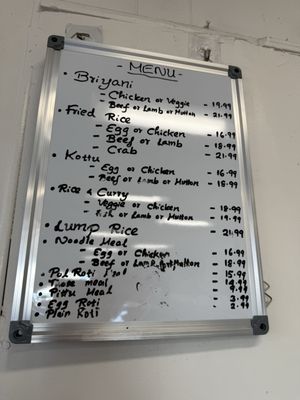 - MENU -
• Briyani
- Chicken or Veggie - 19.99
- Beef or Lamb or Mutton - 21.99
• Fried Rice
- Egg or Chicken - 16.99
- Beef or Lamb - 18.99
- Crab - 21.99
• Kottu
- Egg or Chicken - 16.99
- Beef or Lamb or Mutton - 18.99
• Rice & Curry
- Veggie or Chicken - 18.99
- Fish or Lamb or Mutton - 19.99
• Lump Rice - 21.99
• Noodle Meal
- Egg or Chicken - 16.99
- Beef or Lamb or Mutton - 18.99
• Pol Roti - 15.99
• Meal
• Pittu Meal - 9.99
• Egg Roti - 3.99
• Plain Roti - 2.99